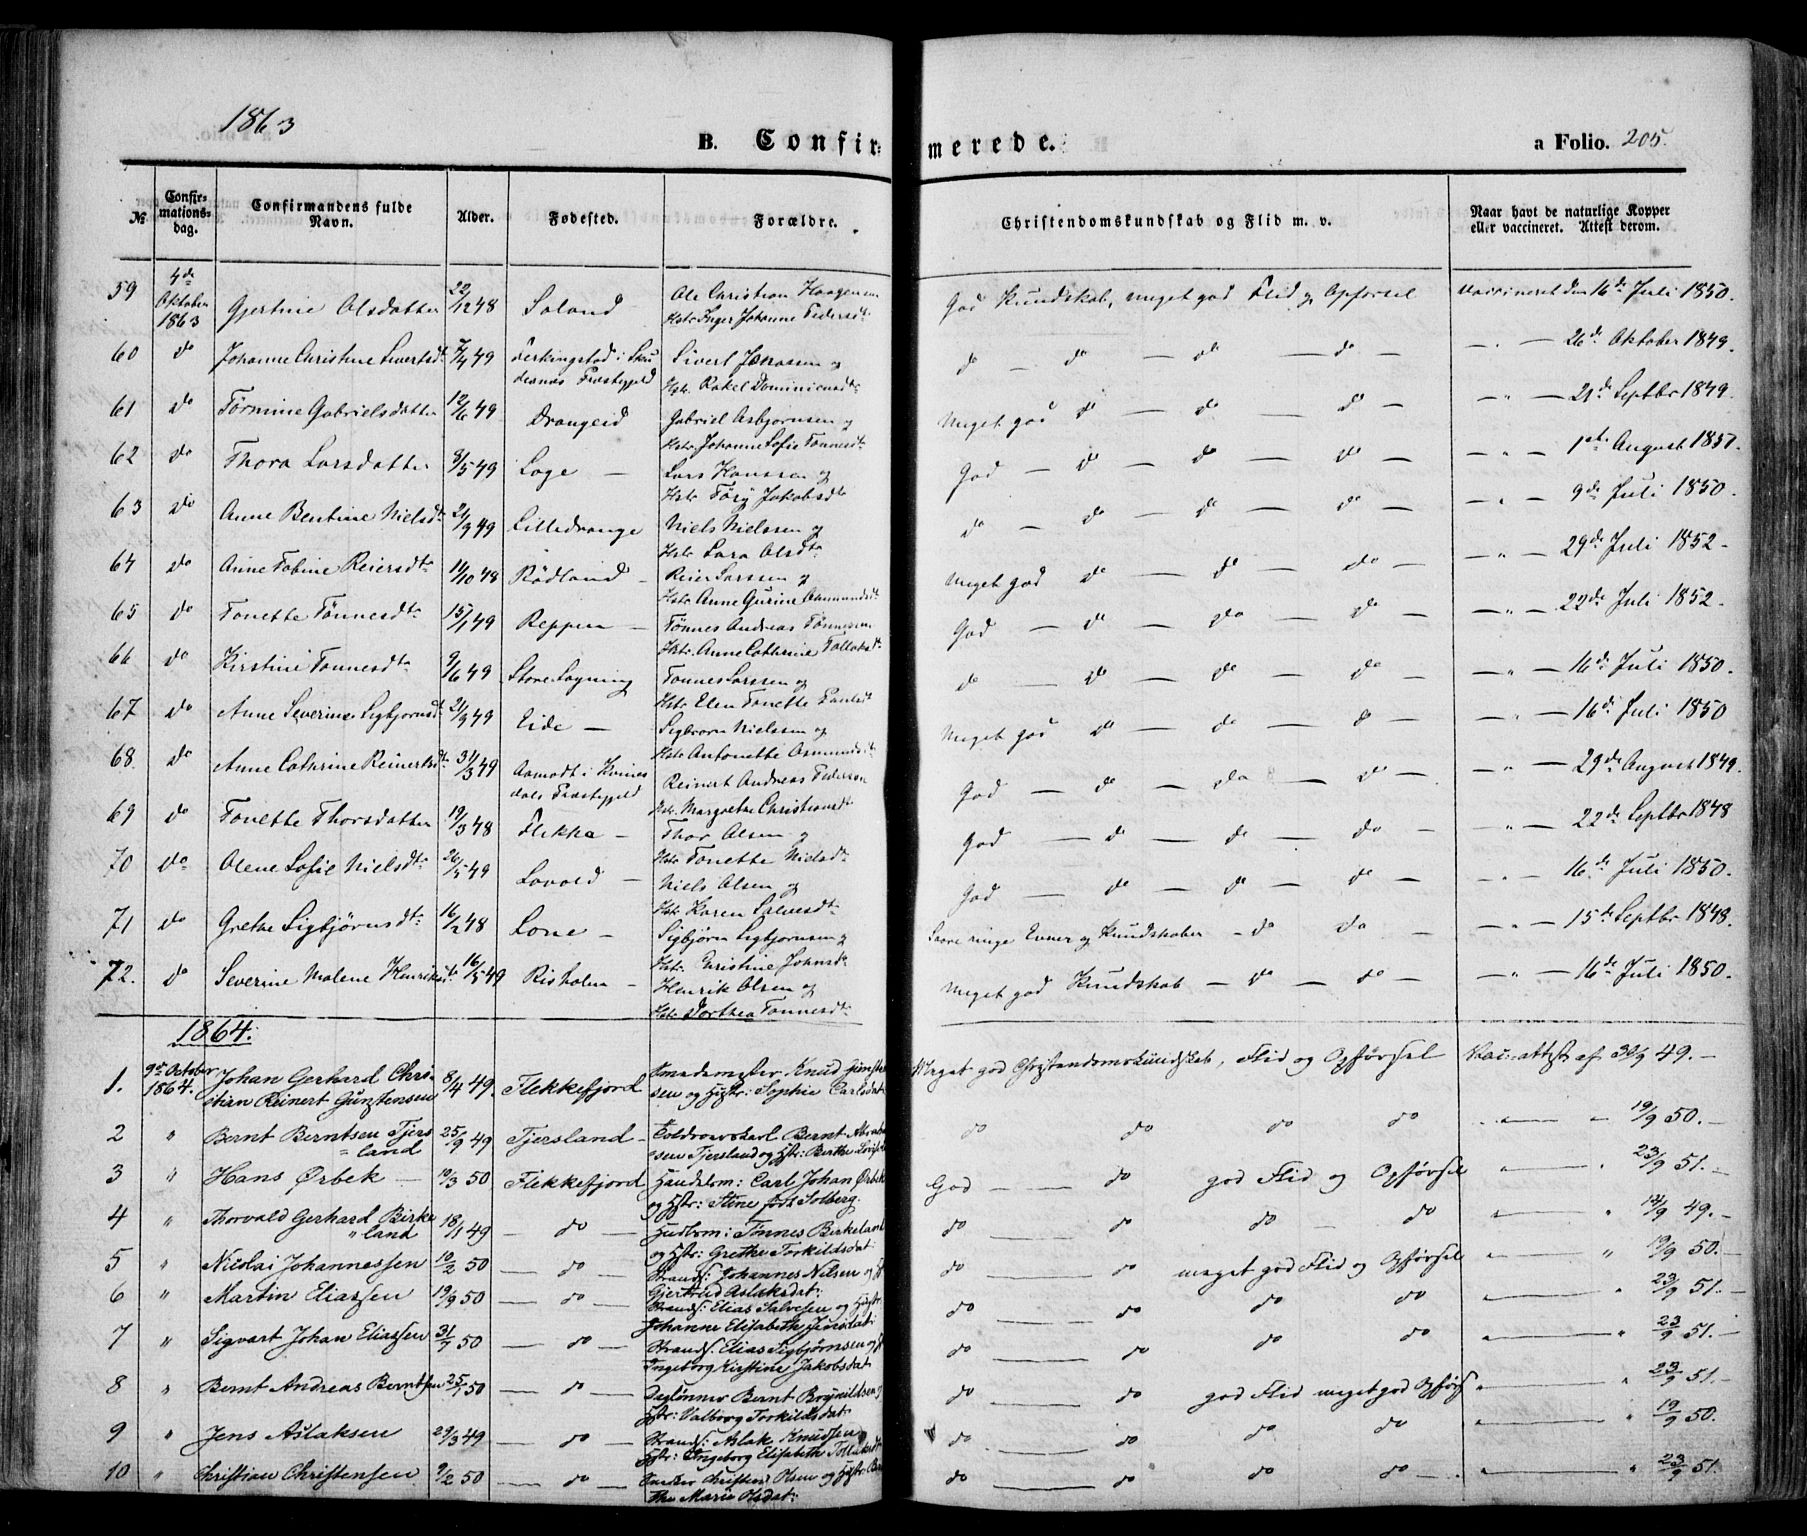 1863
B. Confir- merede. a Folio. 205.
№ Confir-mations-dag. Confirmandens fulde Navn. Alder. Fødested. Forældre. Christendomskundskab og Flid m. v. Naar havt de naturlige Kopper eller vaccineret. Attest derom.
59 4de Oktober 1863 Gjertine Olsdatter 22/12 48 Soland Ole Christian Haagensen Hstr Inger Johanne Pedersdt God Kundskab, meget god Flid og Opførsel Vaccineret den 16de Juli 1850.
60 do Johanne Christine Sivertsdt 7/4 49 Ferkingstad i Skudesnæs Præstegjeld Sivert Jonassen og Hstr. Rakel Dominicusdtr do — do — do — do — — " — 26de Oktober 1849.
61 do Tørmine Gabrielsdatter 12/6 49 Drangeid Gabriel Asbjørnsen og Hstr Johanne Sofie Tønnesdtr Meget god do — do — do — — " — 21de Septbr 1849.
62 do Thora Larsdatter 8/5 49 Loge — Lars Hanssen og Hstr Jakobsdtr God — do — do — do — — " — 1ste August 1851.
63 do Anne Bentine Nielsdt 21/9 49 Lilledrange Niels Nielssen og Hstr Sara Olsdtr do — do — do — do — — " — 9de Juli 1850.
64 do Anne Tobine Reiersdtr 11/10 48 Rødland — Reier Larssen og Hstr Anne Gurine Osmundsdt Meget god do — do — do — — " — 29de Juli 1852.
65 do Tonette Tønnesdtr 15/1 49 Reppen — Tønnes Andreas Tønnesen Hstr. Anne Cathrine Tollaksdt God — do — do — do — — " — 22de Juli 1852.
66 do Kirstine Tønnesdtr 9/6 49 Store Løgning Tønnes Larssen og Hstr Elen Tonette Paulsdt do — do — do — do — — " — 16de Juli 1850.
67 do Anne Severine Sigbjørnsdt 21/3 49 Eide — Sigbjørn Nielssen og Hstr Antonette Osmundsdtr Meget god do — do — do — — " — 16de Juli 1850
68 do Anne Cathrine Reinertsdt 31/3 49 Aamodt i Kvinesdals Præstegjeld Reinert Andreas Pedersen Hstr. Margrethe Christiansdtr God — do — do — do — — " — 29de August 1849.
69 do Tonette Thorsdatter 19/3 48 Flikka — Thor Olsen og Hstr Tonette Nielsdtr God — do — do — do — — " — 22de Septbr 1848
70 do Olene Sofie Nielsdtr 26/5 49 Lavold — Niels Olsen og Hstr Karen Salvesdtr God — do — do — do — — " — 16de Juli 1850.
71 do Grethe Sigbjørnsdtr 16/12 48 Lone — Sigbjørn Sigbjørnsen og Hstr. Christine Johnsdtr Saare ringe Evner og Kundskaber — do do — — " — 15de Septbr 1848.
72. do Severine Malene Henriksdtr 16/5 49 Risholm — Henrik Olsen og Hstr Dorthea Tønnesdtr Meget god Kundskab — do — do — — " — 16de Juli 1850.
1864.
1. 9de October 1864. Johan Gerhard Christian Reinert Gunstensen 8/4 49. Flekkefjord Smedemester Knud Gunstensen og Hstr: Sophie Carlsdatr Meget god Christendomskundskab, Flid og Opførsel Vac: attest af 30/9 49. —
2 " Bernt Berntsen Tjersland 25/9 49 Tjersland — Bernt Tjersland og Hstr: Berthe do do do do 19/9 50. —
3 " Hans Ørbek — 10/3 50 Flekkefjord Handelsm: Carl Johan Ørbek og Hstr: Stene født Solberg. God — do god Flid og Opførsel 23/9 51. —
4 " Thorvald Gerhard Birkeland 18/1 49 — do — Hndlsm: Tønnes Birkeland og Hstr: Grethe Torkildsdat: do — do do — do 14/9 49. —
5 " Nicolai Johannessen 10/2 50 — do — Strands: Johannes Nilsen og H Gjertrud Aslaksdat: do — meget god Flid og Opførsel 19/9 50.
6 " Martin Eliassen 19/9 50 — do — Strands: Elias Salvesen og Hstr: Johanne Elisabeth Jensdat: do — do do do 23/9 51. —
7 " Sigvart Johan Eliassen 31/7 50 — do — Strands: Elias Sigbjørnsen og H Ingeborg Kirstine Jakobsdat: do — do do do 23/9 51. —
8 " Bernt Andreas Berntsen 25/1 50 — do — Daglønner Bernt Brynildsen og Hstr: Valborg Torkildsdat: do — do god Flid meget god Opførs 23/9 51. —
9 " Jens Aslaksen 29/3 49 — do — Strands: Aslak Knudsen Hstr: Ingeborg Elisabeth Tollaksdt do — do do do 19/9 50.
10 " Christian Christensen 9/2 50 — do Christen Olsen og Hstr: Berthe Marie Olsdat: do — do do do — 23/9 51.